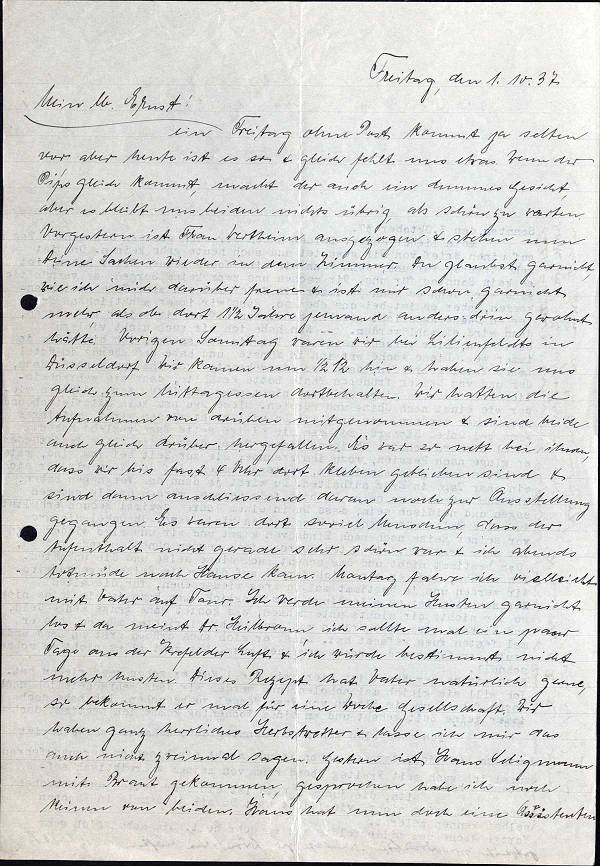 Freitag, den 1. 10. 37
Mein lb. Ernst!
ein Freitag ohne Post kommt ja selten
vor aber heute ist es so & gleich fehlt uns etwas. Wenn der
Pips gleich kommt, macht der auch ein dummes Gesicht,
aber es bleibt uns beiden nichts übrig als schön zu warten.
Vorgestern ist Frau Wertheim ausgezogen & stehen nun
Deine Sachen wieder in dem Zimmer. Du glaubst garnicht,
wie ich mich darüber freue & ist mir schon garnicht
mehr als ob dort 1½ Jahre jemand anders drin gewohnt
hätte. Vorigen Samstag waren wir bei Lilienfeldts in
Düsseldorf. Wir kamen um ½12 hin & haben sie uns
gleich zum Mittagessen dortbehalten. Wir hatten die
Aufnahmen von drüben mitgenommen & sind beide
auch gleich drüber hergefallen. Es war so nett bei ihnen,
dass wir bis fast 4 Uhr dort kleben geblieben sind &
sind dann anschliessend daran noch zur Ausstellung
gegangen. Es waren dort soviel Menschen, dass der
Aufenthalt nicht gerade sehr schön war & ich abends
totmüde nach Hause kam. Montag fahre ich vielleicht
mit Vater auf Tour. Ich werde meinen Husten garnicht
los & da meint Dr. Heilbronn ich sollte mal ein paar
Tage aus der Krefelder Luft & ich würde bestimmt nicht
mehr husten. Dieses Rezept hat Vater natürlich gerne,
so bekommt er mal für eine Woche Gesellschaft. Wir
haben ganz herrliches Herbstwetter & lasse ich mir das
auch nicht zweimal sagen. Gestern ist Hans Seligmann
mit Braut gekommen, gesprochen habe ich noch
keinen von beiden. Hans hat nun doch eine Assistenten